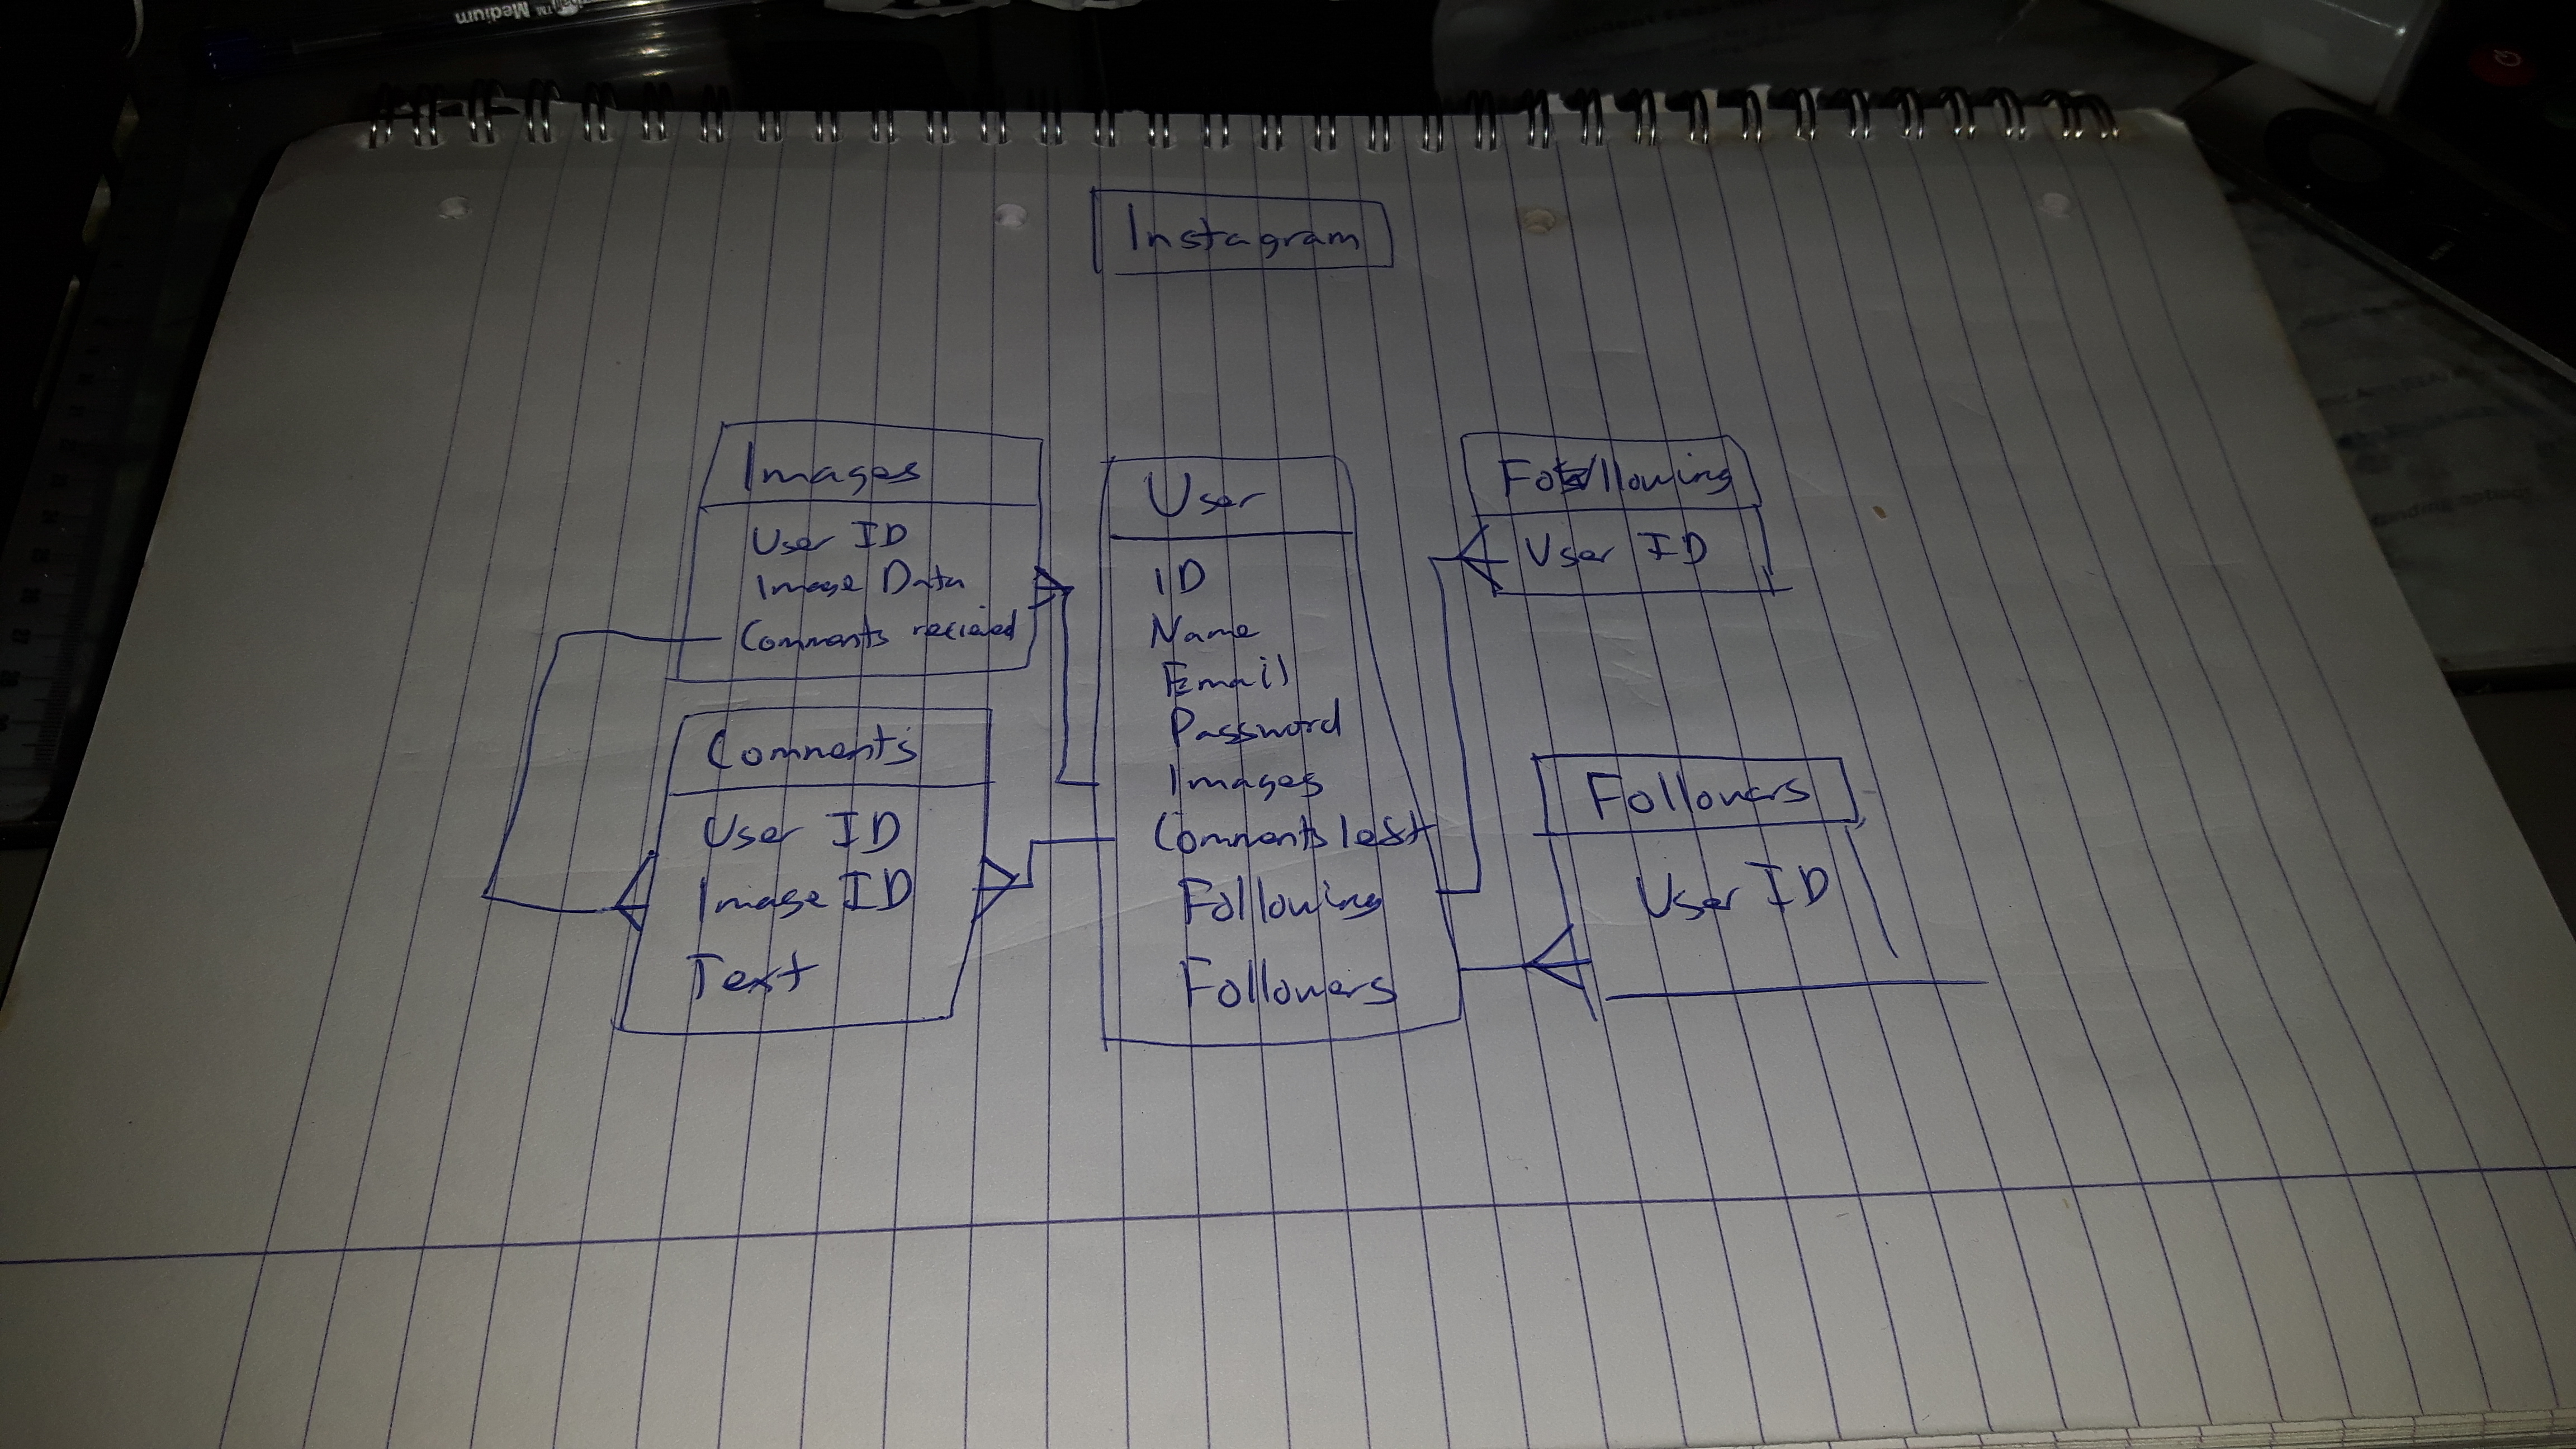 Medium™
Instagram
Images
User ID
Image Data
Comments recieved
Comments
User ID
Image ID
Text
User
ID
Name
Email
Password
Images
Comments left
Following
Followers
Following
User ID
Followers
User ID